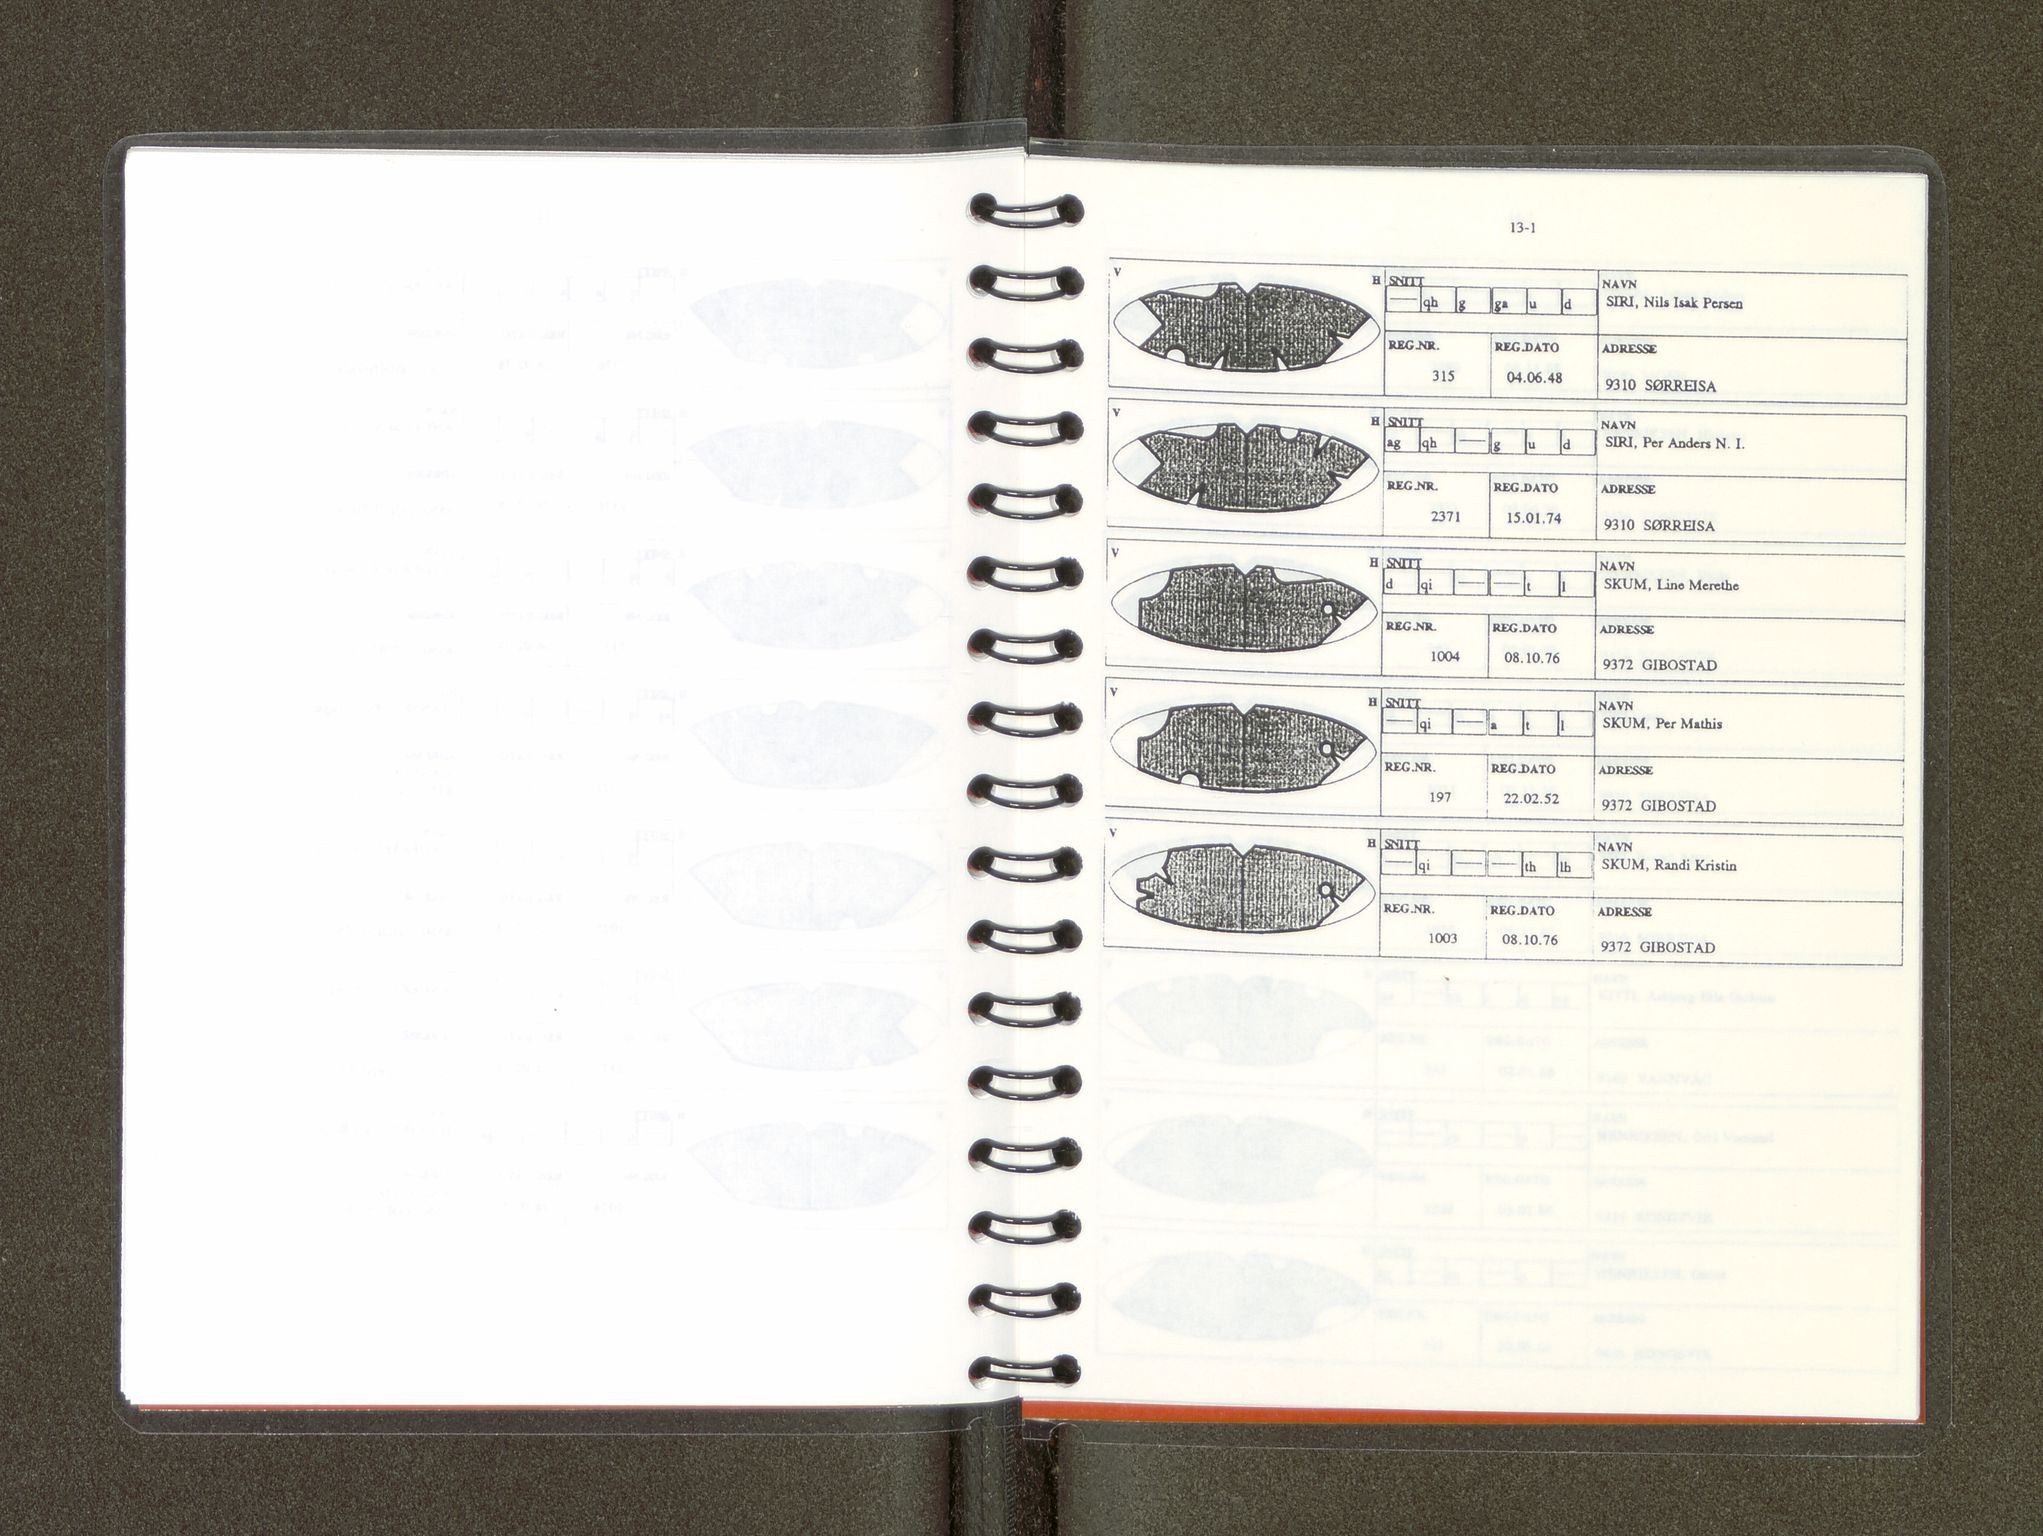 13-1
V H SNITT NAVN
— qh g ga u d SIRI, Nils Isak Persen
REG.NR. REG.DATO ADRESSE
315 04.06.48 9310 SØRREISA
V H SNITT NAVN
ag qh — g u d SIRI, Per Anders N. I.
REG.NR. REG.DATO ADRESSE
2371 15.01.74 9310 SØRREISA
V H SNITT NAVN
d qi — — t l SKUM, Line Merethe
REG.NR. REG.DATO ADRESSE
1004 08.10.76 9372 GIBOSTAD
V H SNITT NAVN
— qi — a t l SKUM, Per Mathis
REG.NR. REG.DATO ADRESSE
197 22.02.52 9372 GIBOSTAD
V H SNITT NAVN
— qi — — th lh SKUM, Randi Kristin
REG.NR. REG.DATO ADRESSE
1003 08.10.76 9372 GIBOSTAD